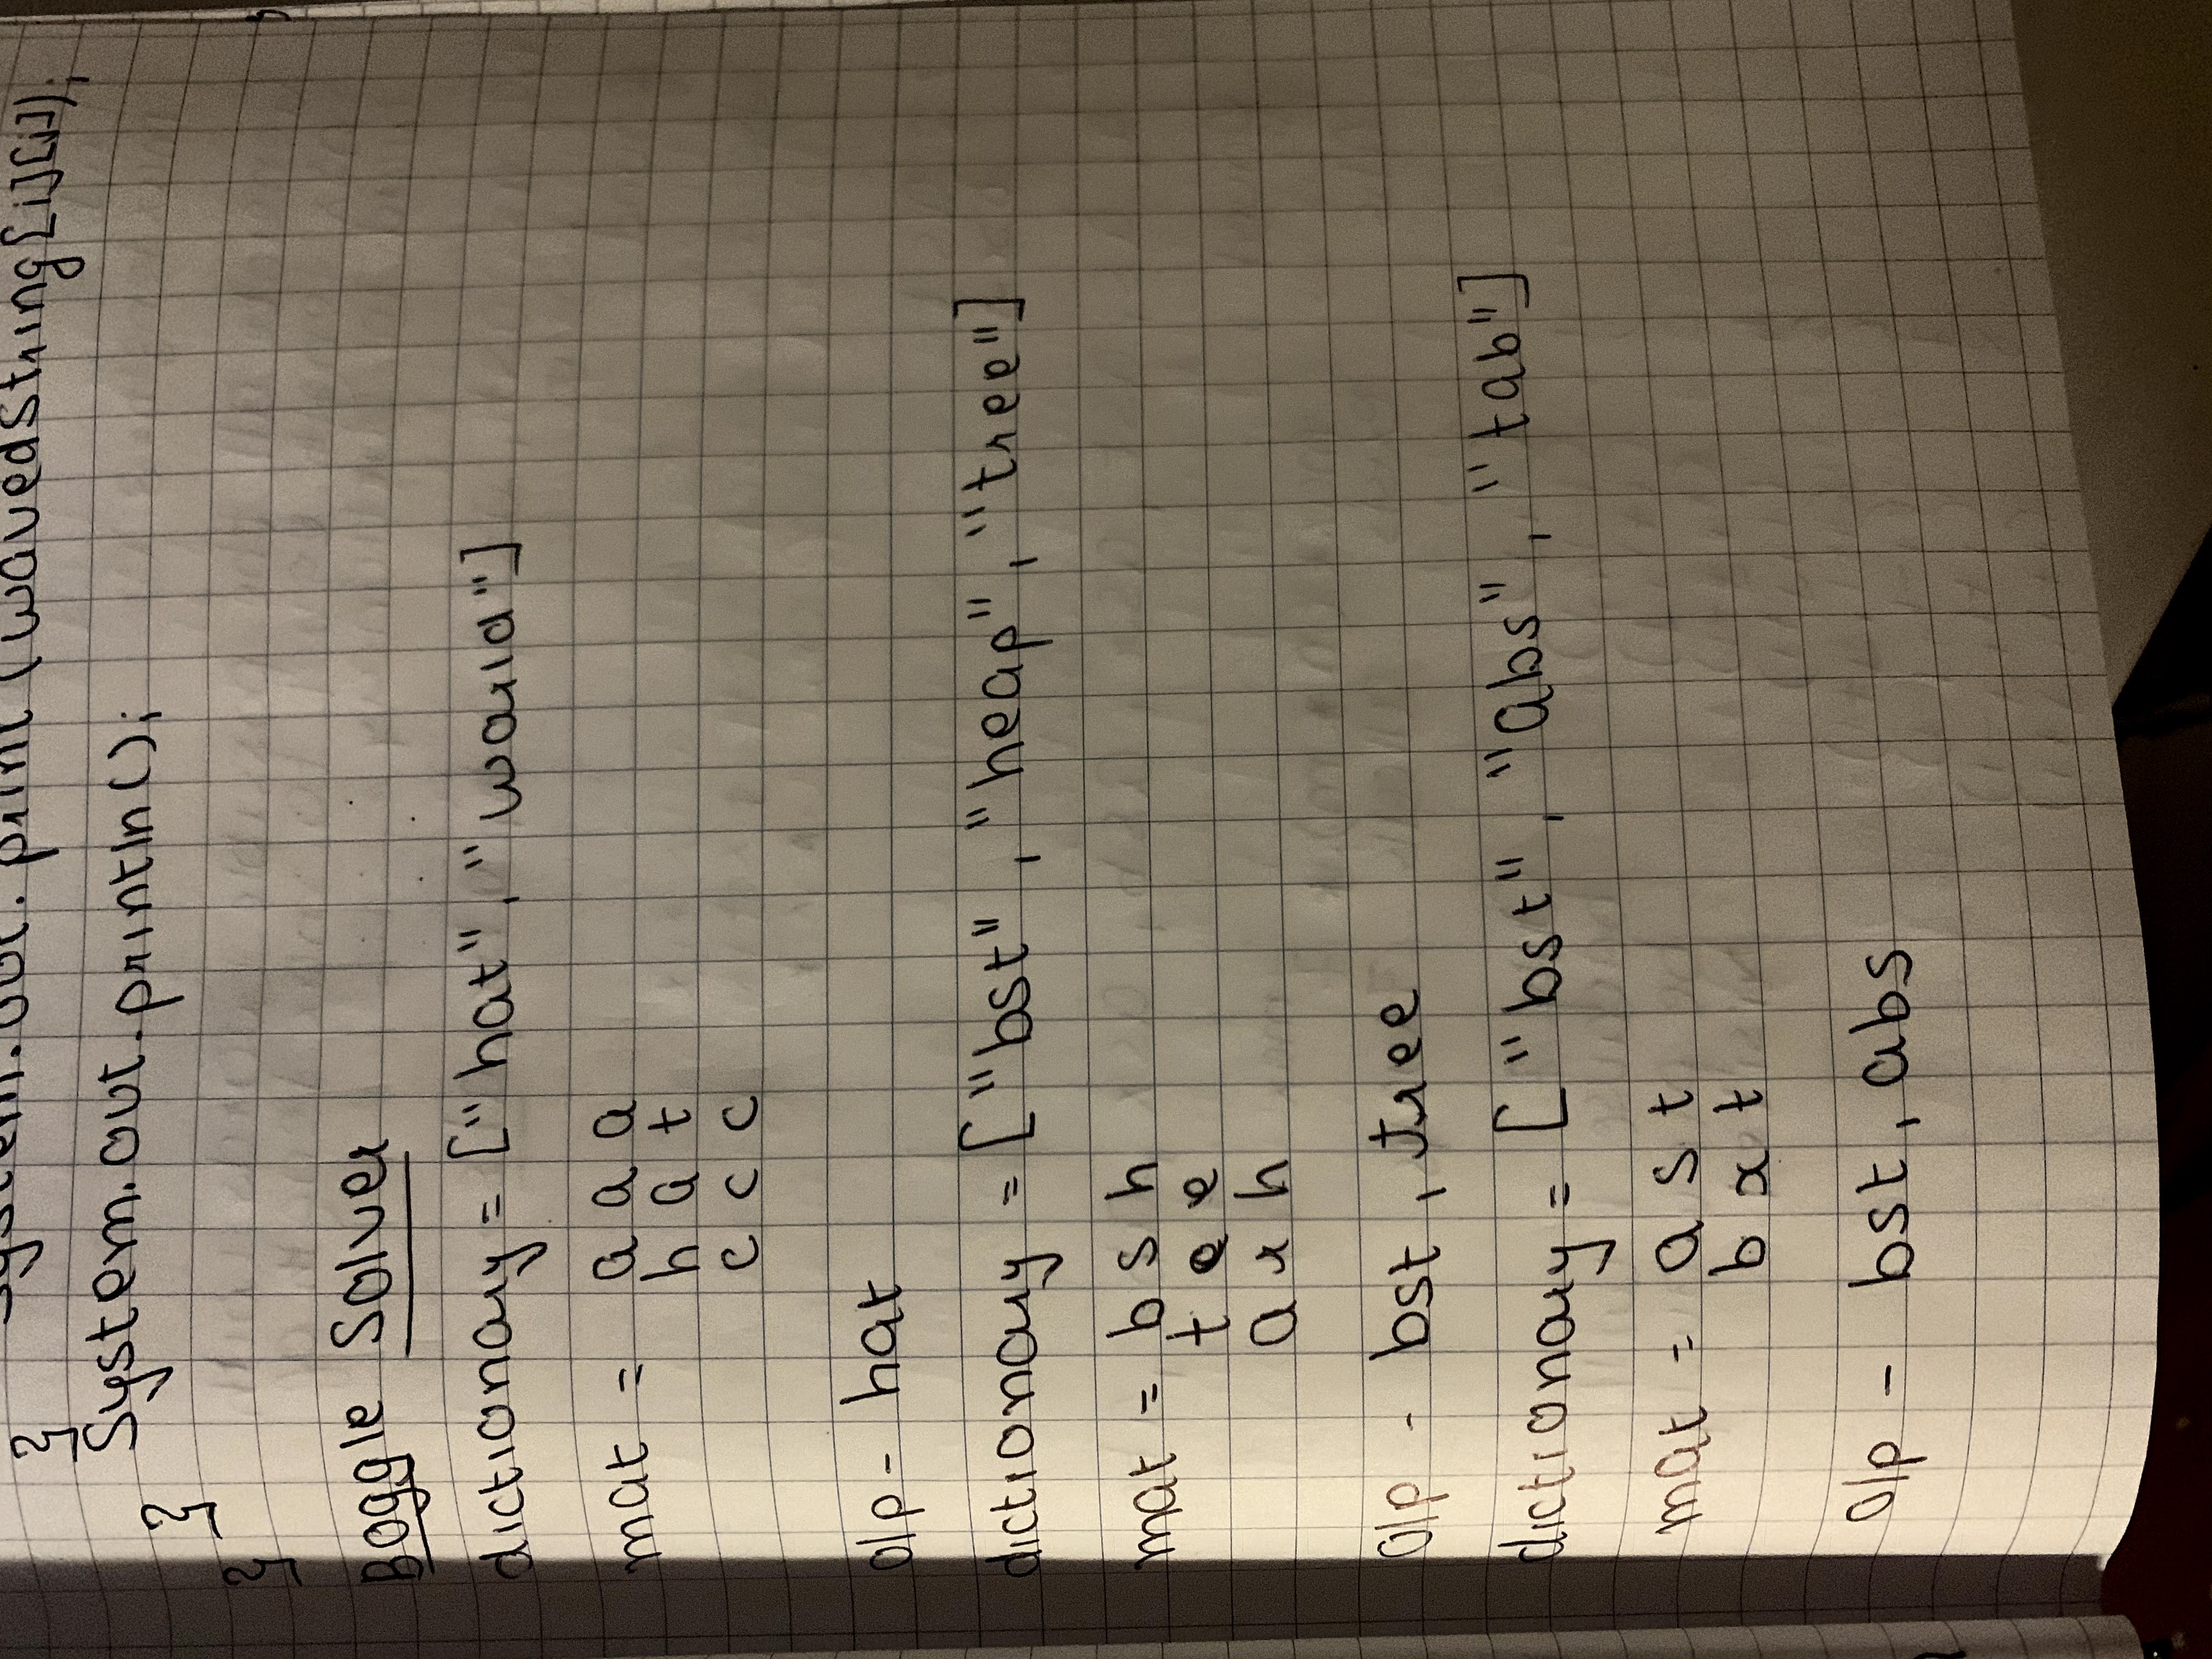 System.out.print(wavedString[i][j]);
}
System.out.println();
}
}
Boggle Solver
dictionary = ["hat", "world"]
mat = a a a
h a t
c c c
o/p - hat
dictionary = ["bst", "heap", "tree"]
mat = b s h
t e e
a r h
O/p - bst, tree
dictionary = ["bst", "abs", "tab"]
mat = a s t
b x t
O/p - bst, abs